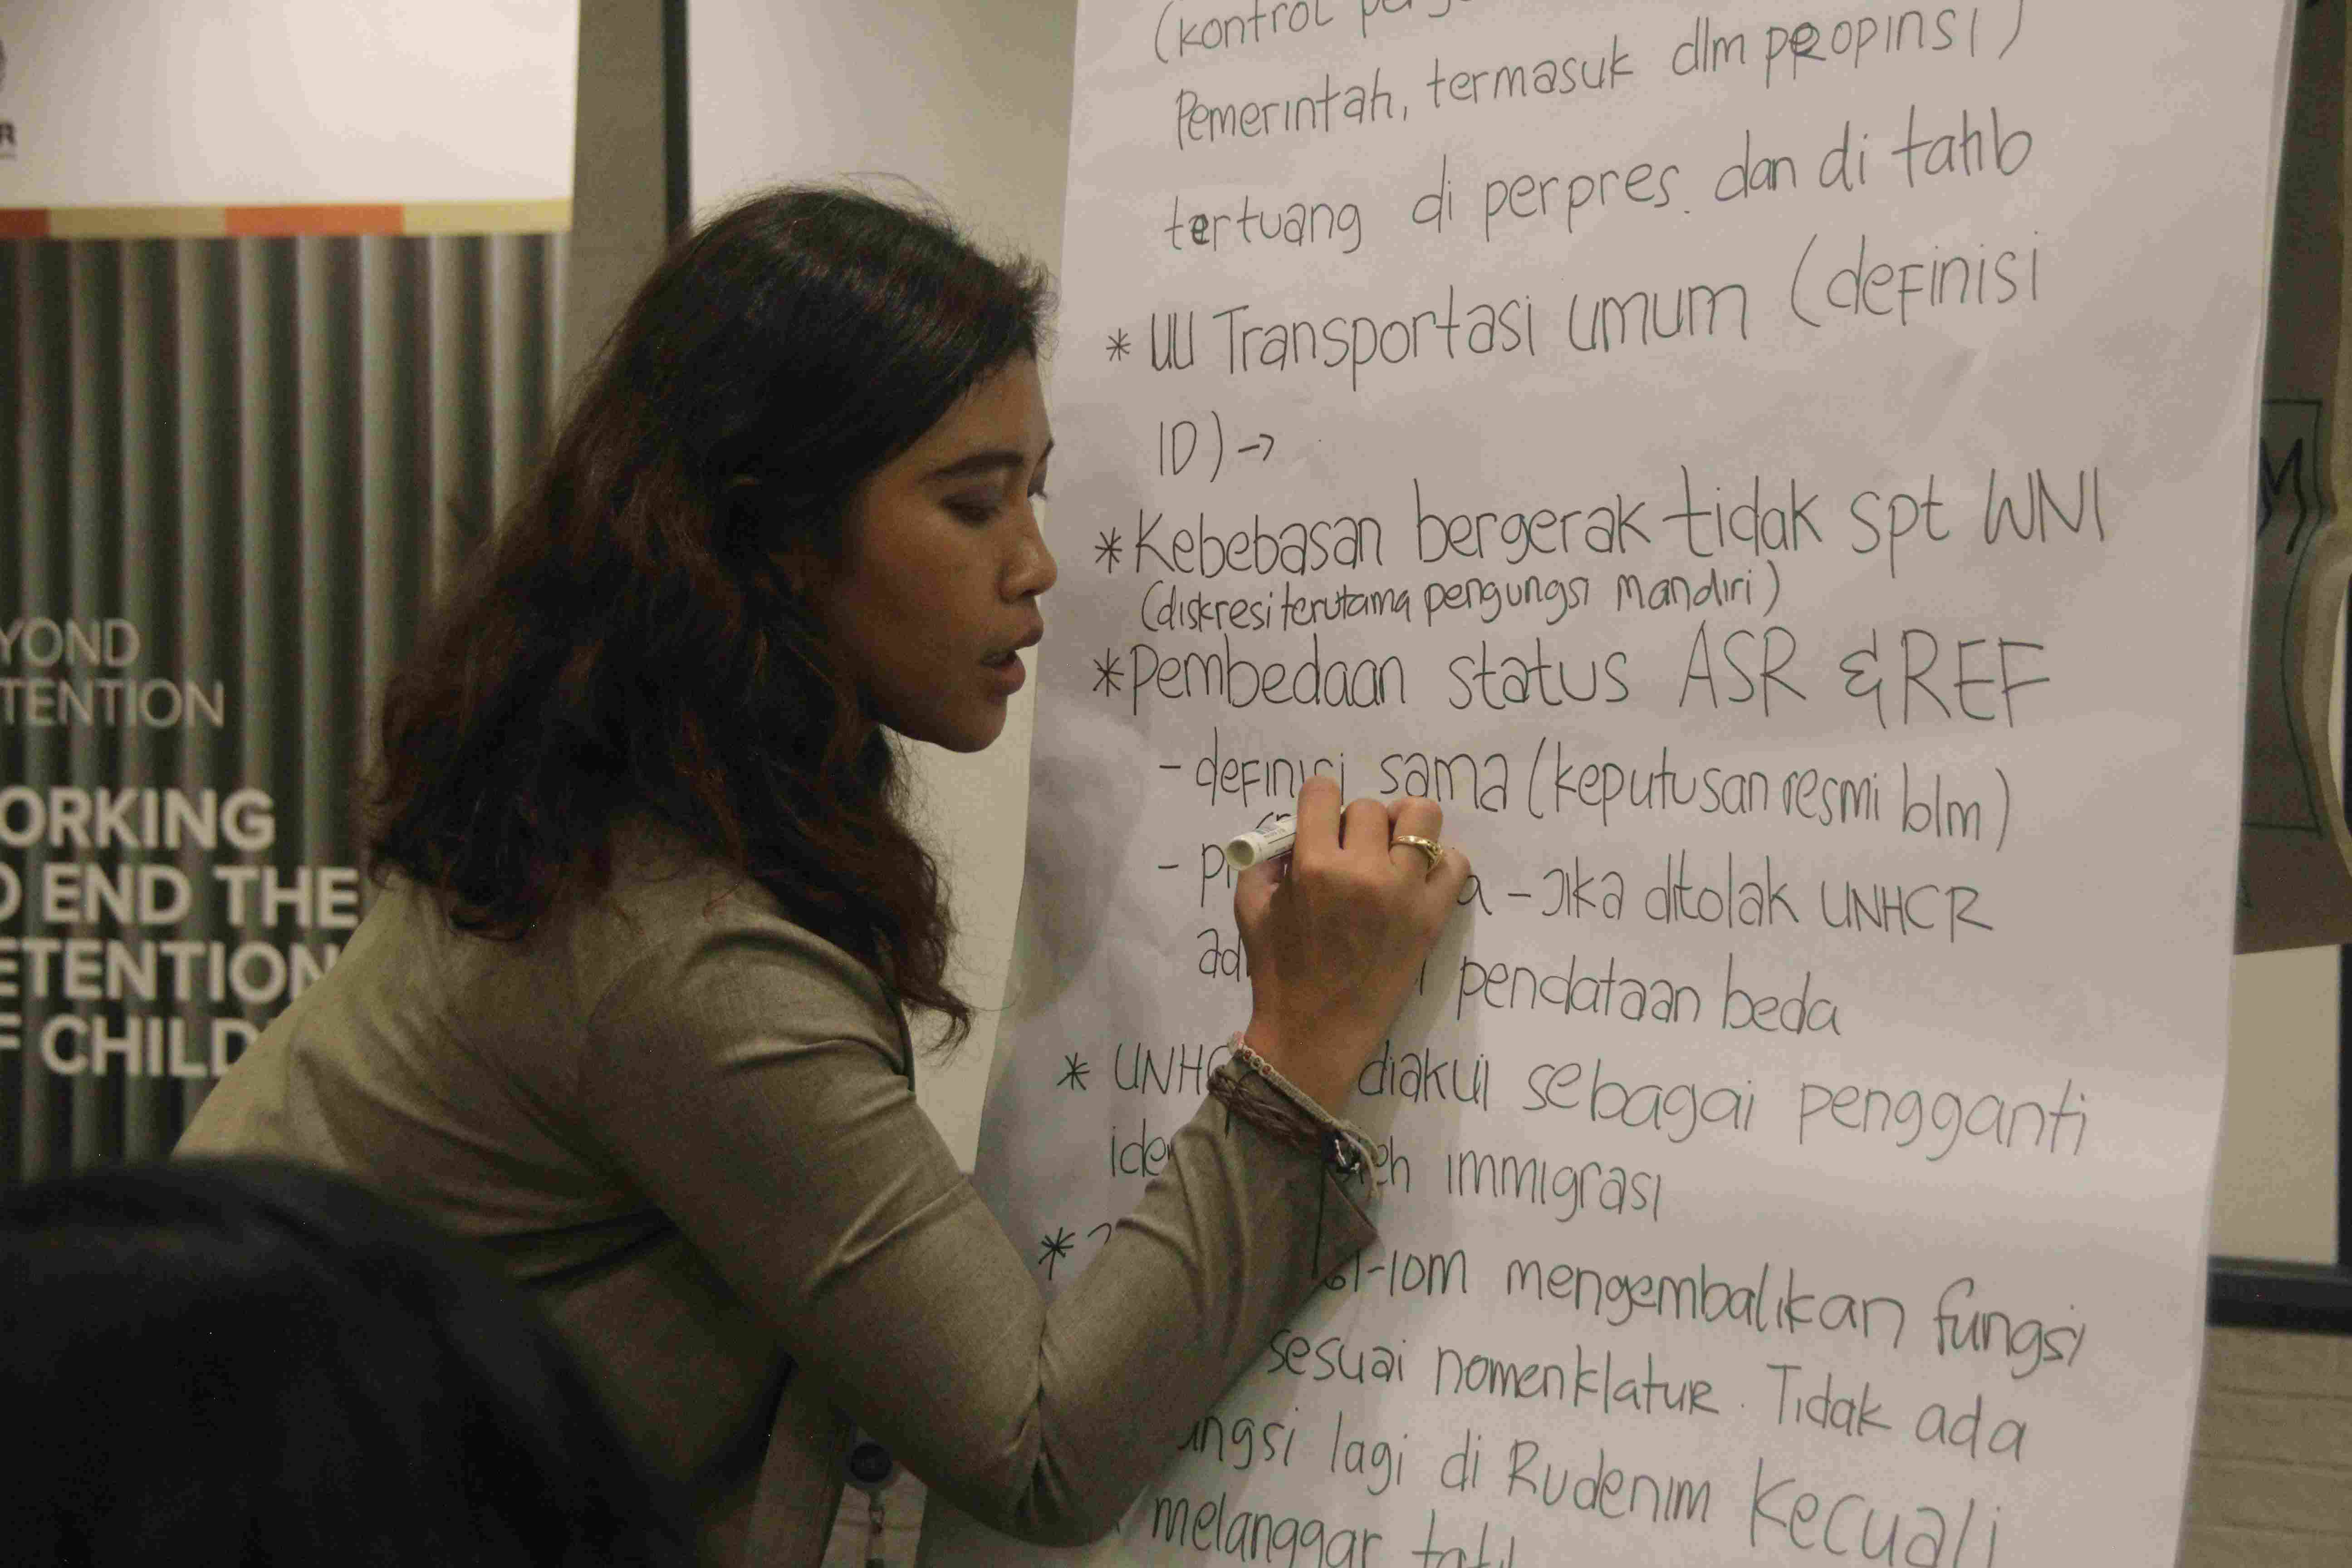 R
YOND
TENTION
ORKING
END THE
ETENTION
F CHILD
(kontrol
Pemerintah, termasuk dlm propinsi)
tertuang di perpres. dan di tahb
* UU Transportasi umum (definisi
ID) →
* Kebebasan bergerak tidak spt WNI
(diskresi terutama pengungsi mandiri)
* Pembedaan status ASR & REF
- definisi sama (keputusan resmi blm)
- jika ditolak UNHCR
pendataan beda
* diakui sebagai pengganti
immigrasi
* -IOM mengembalikan fungsi
sesuai nomenklatur. Tidak ada
lagi di Rudenim kecuali
melanggar
M